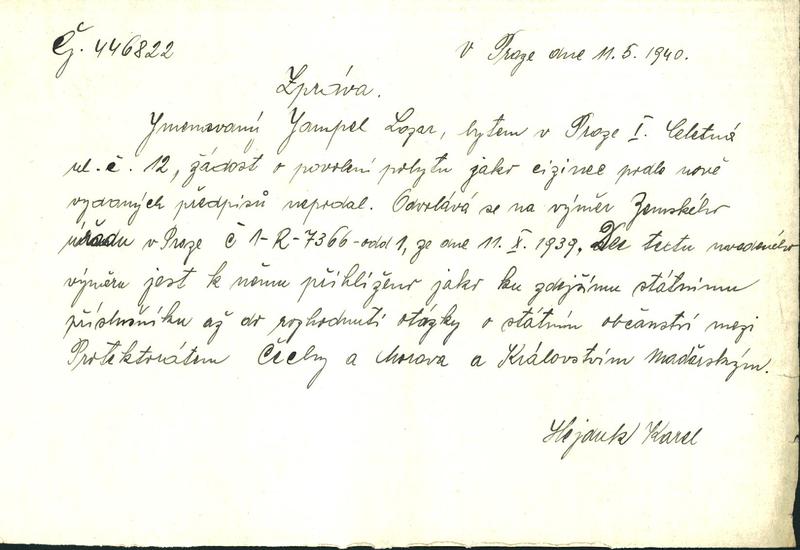 Čj. 446822
V Praze dne 11. 5. 1940.
Zpráva.
Jmenovaný Jampel Lazar, bytem v Praze I. Celetná
ul. č. 12, žádost o povolení pobytu jako cizinec podle nově
vydaných předpisů nepodal. Odvolává se na výměr Zemského
úřadu v Praze č 1-R-7366-odd 1, ze dne 11. X. 1939. Dle tuctu uvedeného
výměru jest k němu přihlíženo jako ku zdejšímu státnímu
příslušníku až do rozhodnutí otázky o státním občanství mezi
Protektorátem Čechy a Morava a Královstvím Maďarským.
Hejduk Karel